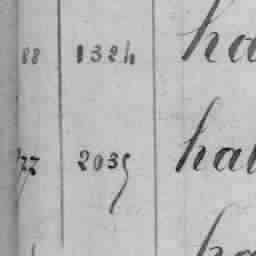 88 1324 ha
77 2035 hal
ha